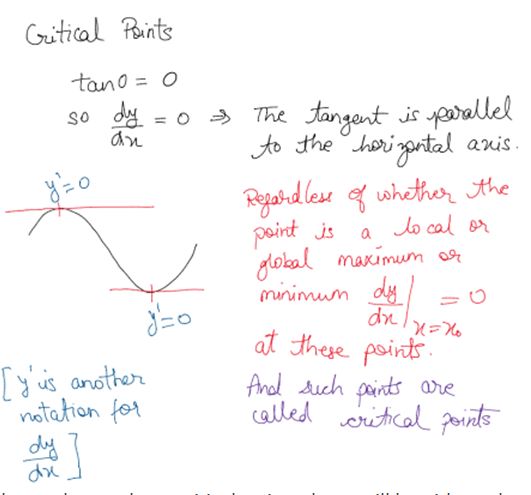 Critical Points
tan0 = 0
so dy/dx = 0 ⇒ The tangent is parallel
to the horizontal axis.
y'=0
y'=0
Regardless of whether the
point is a local or
global maximum or
minimum dy/dx | x=x₀ = 0
at these points.
[y' is another
notation for
dy/dx]
And such points are
called critical points